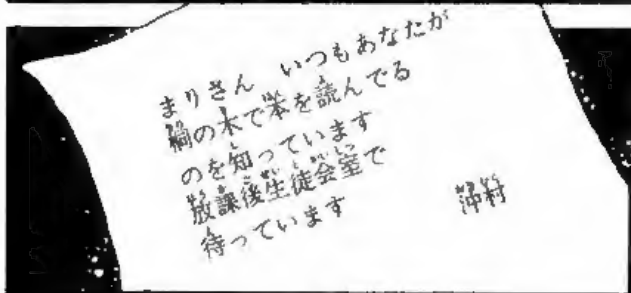 まりさん いつもあなたが
の木で本を読んでる
のを知っています
放課後生徒会室で
待っています
沖村